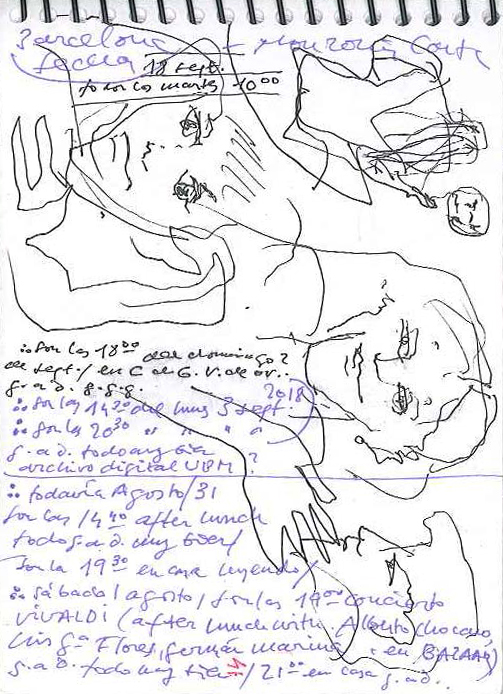 Barcelona
fecha 18 sept.
todos los martes 10:00
∴ son las 18:00 del domingo?
de sept. / en C de G. V. de
g.a.d. g.g.g.
∴ son las 14:30 del lunes 3 sept. 2018
∴ son las 20:30 " " " "
g.a.d. todo muy bien
archivo digital UBM ?
∴ todavía Agosto/31
son las 14:40 after lunch
todo g.a.d. muy bien/
son la 19:30 en casa leyendo/
∴ sábado 1 agosto / son las 19:00 concierto
VIVALDI (after lunch with Alberto
Luis Gª Flores, germán marina, en BAZAAR)
g.a.d. todo muy bien / 21:00 en casa g.a.d.